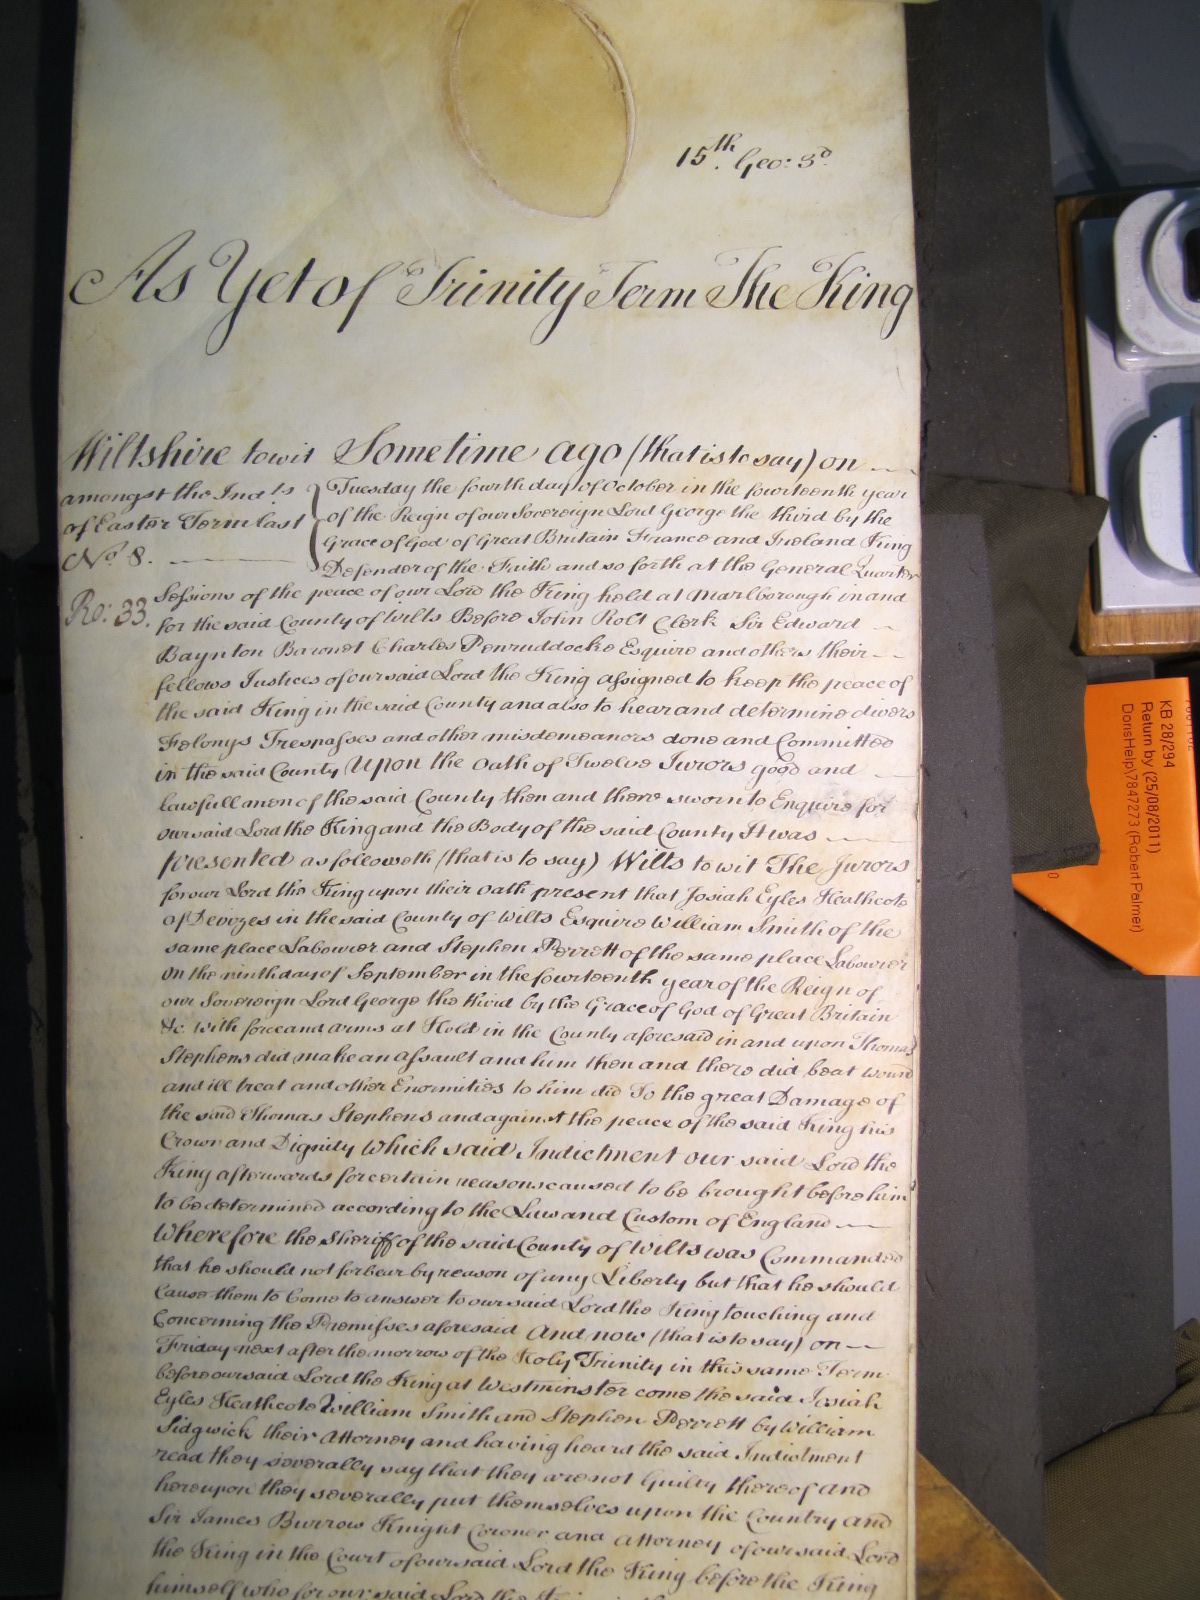 15th. Geo: 3d.
As Yet of Trinity Term The King
Wiltshire to wit Sometime ago (that is to say) on
amongst the Indts
of Easter Term last
No. 8.
Ro: 33.
Tuesday the fourth day of October in the fourteenth year
of the Reign of our Sovereign Lord George the third by the
Grace of God of Great Britain France and Ireland King
Defender of the Faith and so forth at the General Quarter
Sessions of the peace of our Lord the King held at Marlborough in and
for the said County of Wilts Before John Rolt Clerk Sir Edward
Baynton Baronet Charles Penruddocke Esquire and others their
fellows Justices of our said Lord the King assigned to keep the peace of
the said King in the said County and also to hear and determine divers
Felonys Trespasses and other misdemeanors done and Committed
in the said County Upon the Oath of Twelve Jurors good and
lawfull men of the said County then and there sworn to Enquire for
our said Lord the King and the Body of the said County It was
presented as followeth (that is to say) Wilts to wit The Jurors
for our Lord the King upon their oath present that Josiah Eyles Heathcote
of Devizes in the said County of Wilts Esquire William Smith of the
same place Labourer and Stephen Perrett of the same place Labourer
on the ninth day of September in the fourteenth year of the Reign of
our Sovereign Lord George the third by the Grace of God of Great Britain
&c. with force and arms at Hold in the County aforesaid in and upon Thomas
Stephens did make an assault and him then and there did beat wound
and ill treat and other Enormities to him did To the great Damage of
the said Thomas Stephens and against the peace of the said King his
Crown and Dignity Which said Indictment our said Lord the
King afterwards for certain reasons caused to be brought before him
to be determined according to the Law and Custom of England
Wherefore the Sheriff of the said County of Wilts was Commanded
that he should not forbear by reason of any Liberty but that he should
Cause them to Come to answer to our said Lord the King touching and
Concerning the Premisses aforesaid And now (that is to say) on
Friday next after the morrow of the Holy Trinity in this same Term
before our said Lord the King at Westminster come the said Josiah
Eyles Heathcote William Smith and Stephen Perrett by William
Sidgwick their Attorney and having heard the said Indictment
read they severally say that they are not Guilty thereof and
hereupon they severally put themselves upon the Country and
Sir James Burrow Knight Coroner and Attorney of our said Lord
the King in the Court of our said Lord the King before the King
himself who for our said Lord the
KB 28/294
Return by (25/08/2011)
DorisHelp\7847273 (Robert Palmer)